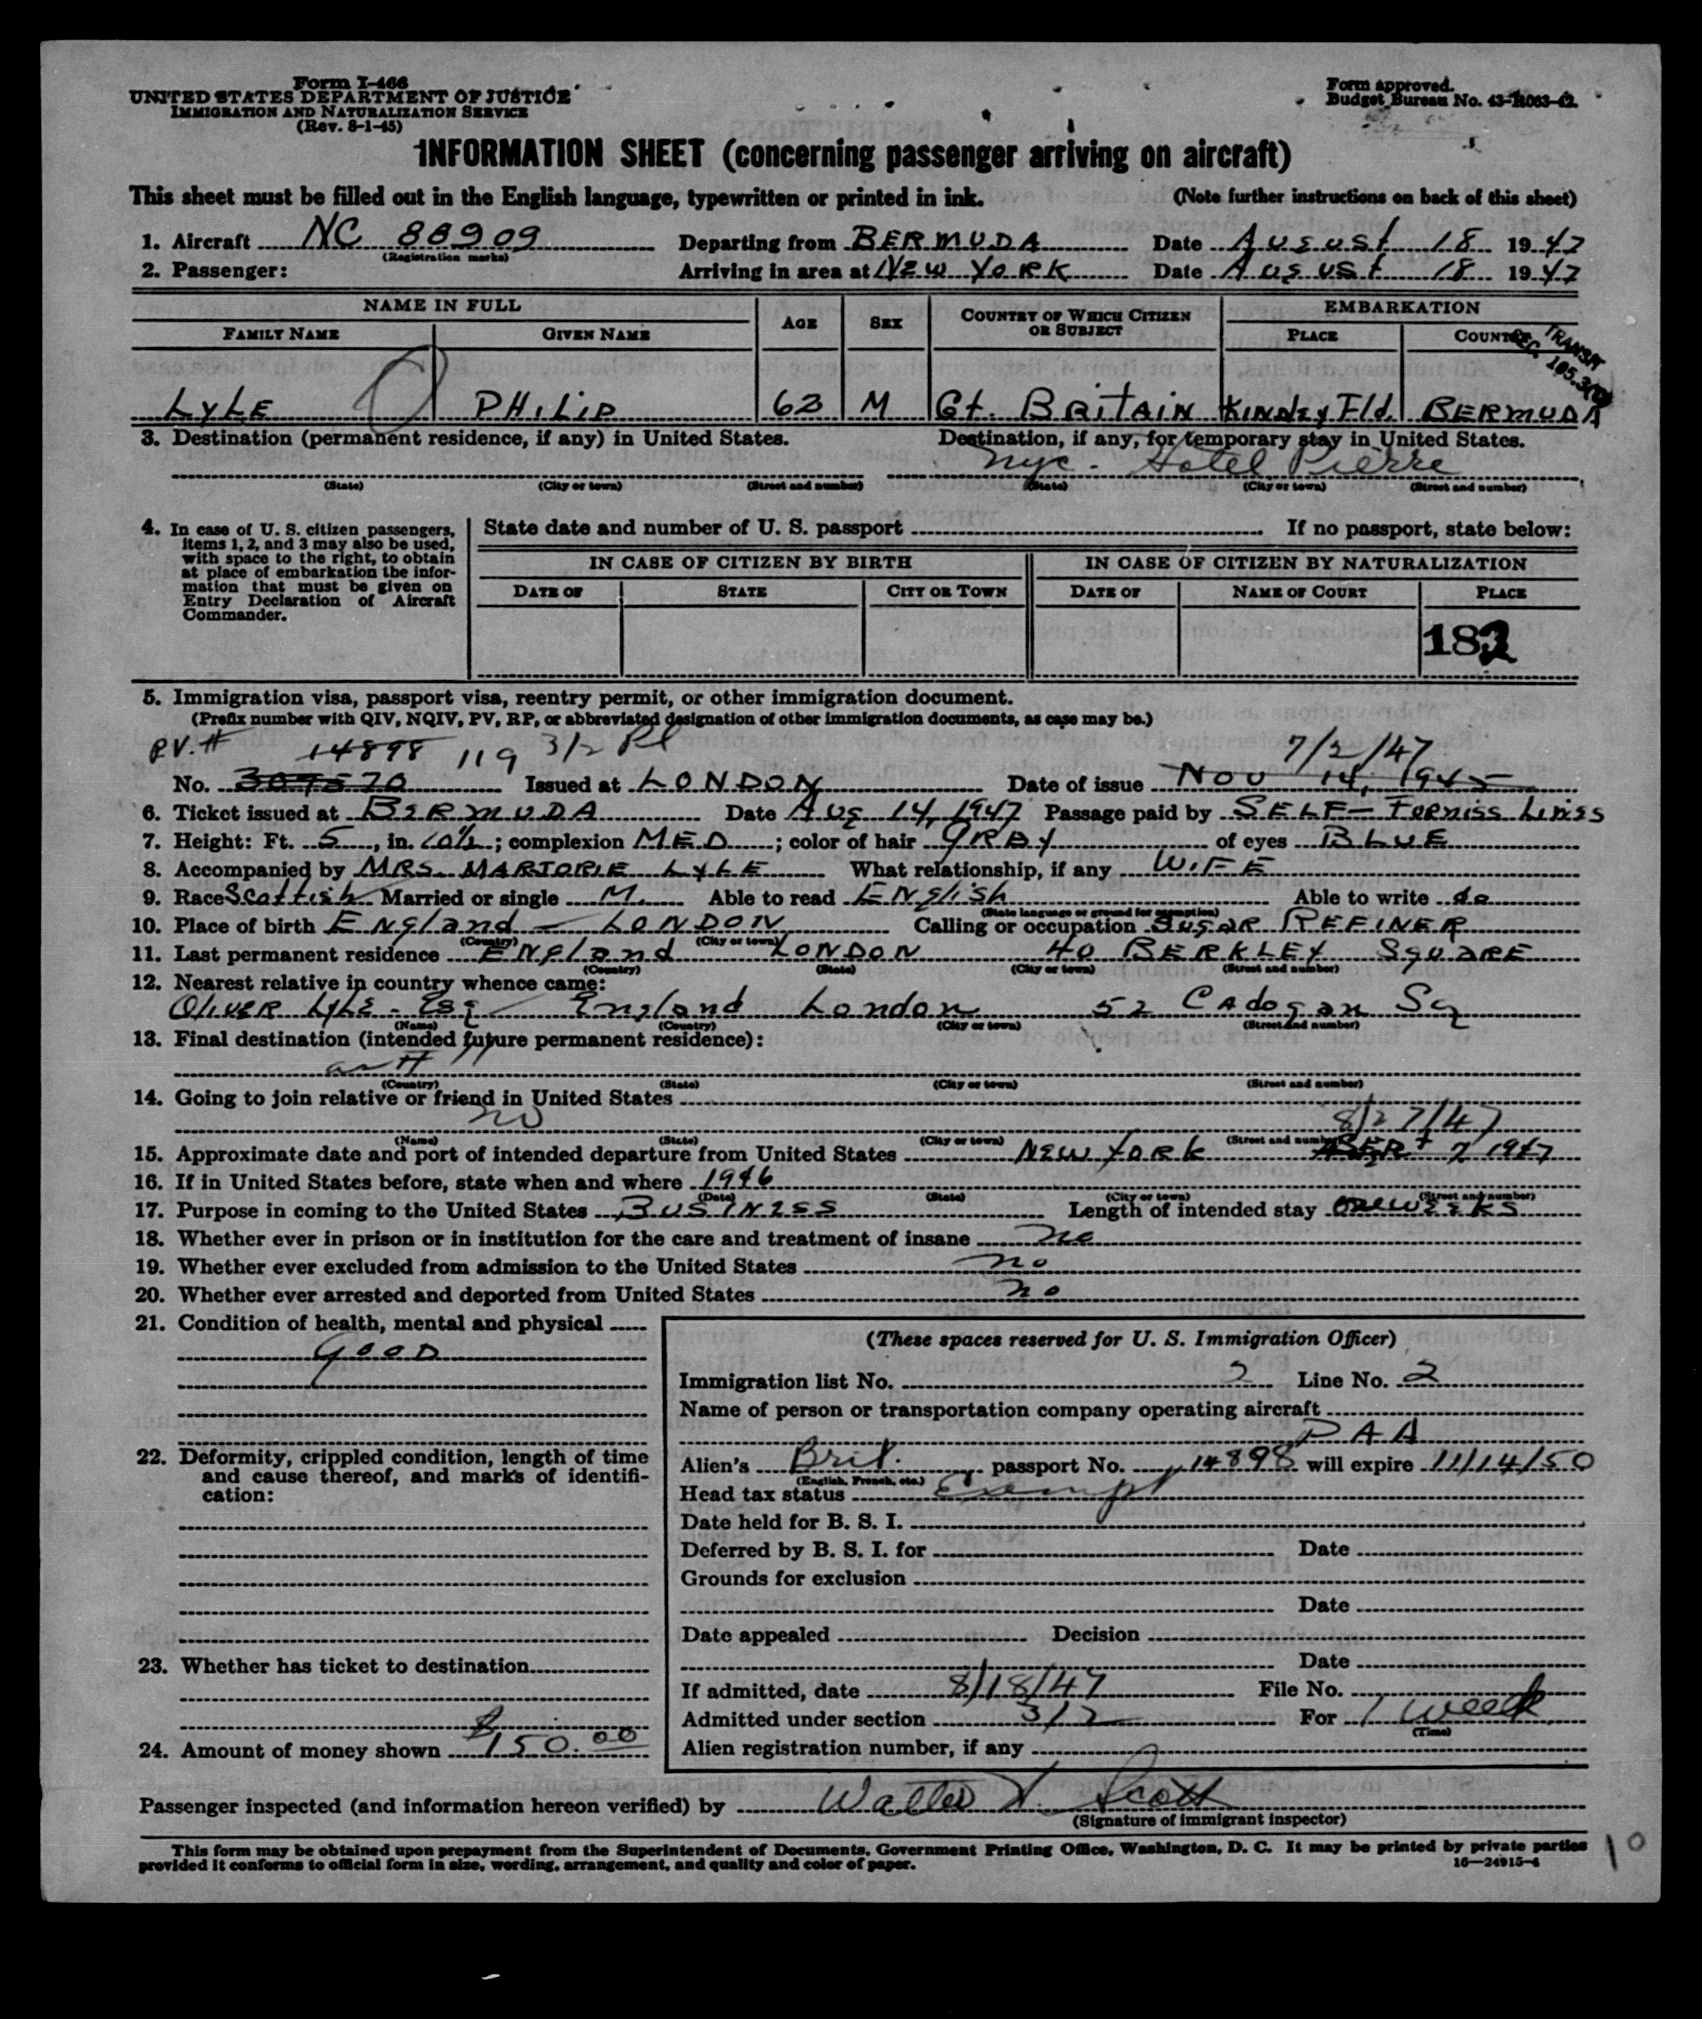 Form I-466
UNITED STATES DEPARTMENT OF JUSTICE
IMMIGRATION AND NATURALIZATION SERVICE
(Rev. 8-1-45)
Form approved.
Budget Bureau No. 43-R063-42.
INFORMATION SHEET (concerning passenger arriving on aircraft)
This sheet must be filled out in the English language, typewritten or printed in ink. (Note further instructions on back of this sheet)
1. Aircraft NC 88909 Departing from BERMUDA Date August 18 1947
(Registration marks)
2. Passenger: Arriving in area at NEW YORK Date August 18 1947
NAME IN FULL AGE SEX COUNTRY OF WHICH CITIZEN OR SUBJECT EMBARKATION
FAMILY NAME GIVEN NAME PLACE COUNTRY
TRANSIT
SEC. 105.3
LYLE PHILIP 62 M Gt. BRITAIN KINDLEY Fld. BERMUDA
3. Destination (permanent residence, if any) in United States. Destination, if any, for temporary stay in United States.
nyc. Hotel Pierre
(State) (City or town) (Street and number) (State) (City or town) (Street and number)
4. In case of U. S. citizen passengers, items 1, 2, and 3 may also be used, with space to the right, to obtain at place of embarkation the information that must be given on Entry Declaration of Aircraft Commander.
State date and number of U. S. passport If no passport, state below:
IN CASE OF CITIZEN BY BIRTH IN CASE OF CITIZEN BY NATURALIZATION
DATE OF STATE CITY OR TOWN DATE OF NAME OF COURT PLACE
182
5. Immigration visa, passport visa, reentry permit, or other immigration document.
(Prefix number with QIV, NQIV, PV, RP, or abbreviated designation of other immigration documents, as case may be.)
P.V. # 14898 119 3/2 7/2/47
No. Issued at LONDON Date of issue Nov 14, 1945
6. Ticket issued at BERMUDA Date Aug 14, 1947 Passage paid by SELF - Furniss Lines
7. Height: Ft. 5, in. 10½; complexion MED; color of hair GREY of eyes BLUE
8. Accompanied by MRS. MARJORIE LYLE What relationship, if any WIFE
9. Race Scottish Married or single M. Able to read English Able to write do
(State language or ground for exemption)
10. Place of birth England - LONDON Calling or occupation Sugar REFINER
(Country) (City or town)
11. Last permanent residence England LONDON 40 BERKLEY SQUARE
(Country) (State) (City or town) (Street and number)
12. Nearest relative in country whence came:
OLIVER LYLE - Esq England London 52 Cadogan Sq
(Name) (Country) (City or town) (Street and number)
13. Final destination (intended future permanent residence):
as # 11
(Country) (State) (City or town) (Street and number)
14. Going to join relative or friend in United States
no 8/27/47
(Name) (State) (City or town) (Street and number)
15. Approximate date and port of intended departure from United States NEW YORK 7 1947
16. If in United States before, state when and where 1946
(Date) (State) (City or town) (Street and number)
17. Purpose in coming to the United States BUSINESS Length of intended stay one WEEKS
18. Whether ever in prison or in institution for the care and treatment of insane no
19. Whether ever excluded from admission to the United States no
20. Whether ever arrested and deported from United States no
21. Condition of health, mental and physical
GOOD
22. Deformity, crippled condition, length of time and cause thereof, and marks of identification:
23. Whether has ticket to destination
24. Amount of money shown $150.00
(These spaces reserved for U. S. Immigration Officer)
Immigration list No. 2 Line No. 2
Name of person or transportation company operating aircraft
PAA
Alien's Brit. passport No. 14898 will expire 11/14/50
(English, French, etc.)
Head tax status Exempt
Date held for B. S. I.
Deferred by B. S. I. for Date
Grounds for exclusion
Date
Date appealed Decision
Date
If admitted, date 8/18/47 File No.
Admitted under section 3/2 For 1 week
(Time)
Alien registration number, if any
Passenger inspected (and information hereon verified) by Walter W. Scott
(Signature of immigrant inspector)
This form may be obtained upon prepayment from the Superintendent of Documents, Government Printing Office, Washington, D. C. It may be printed by private parties
provided it conforms to official form in size, wording, arrangement, and quality and color of paper. 16—24915-4
10